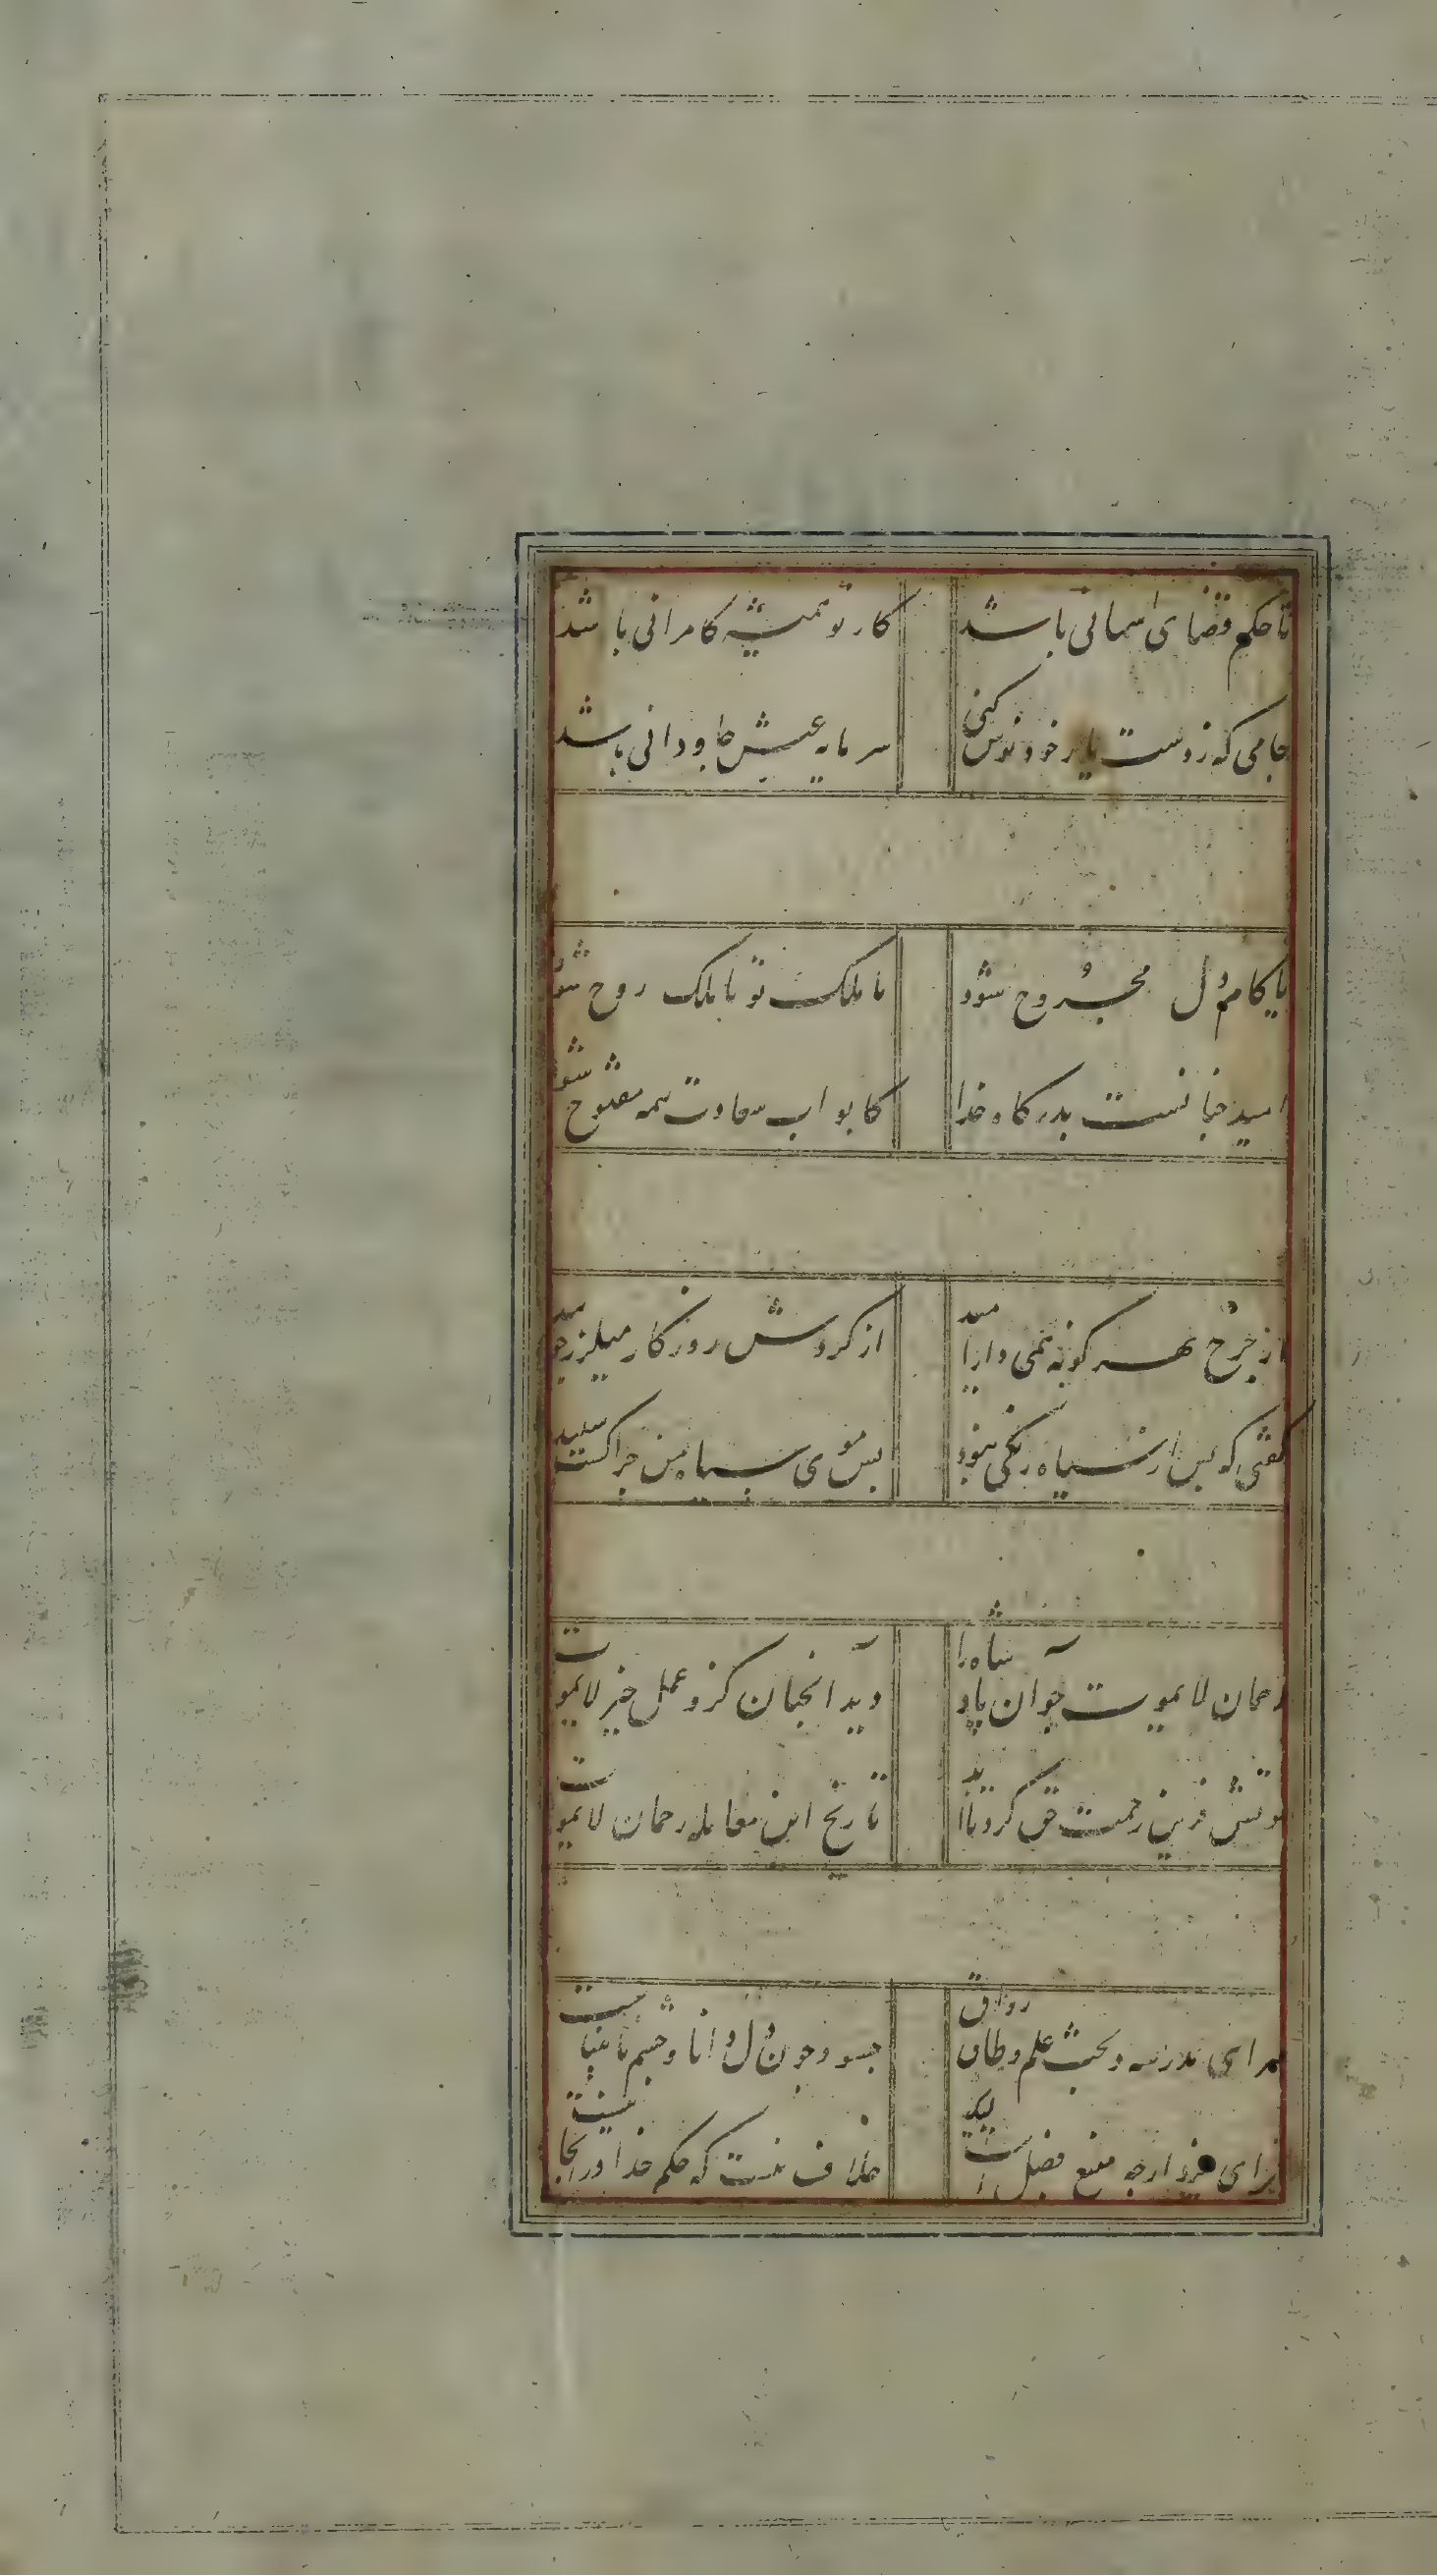 تا حکم قضای آسمانی باشد کار تو همیشه کامرانی باشد
جامی که ز دست یار خود نوش کنی سرمایه عیش جاودانی باشد
با کام دل مجروح شود تا ملک تو با ملک روح شود
امید چنانست بدرگاه خدا کابواب سعادت همه مفتوح شود
از چرخ بهر گونه همی دار امید از گردش روزگار میلرز چو بید
گفتی که پس از سیاه رنگی نبود پس موی سیاه من چرا گشت سفید
رحمان لایموت چو آن پادشاه را دید آنچنان کزو عمل خیر لایموت
موتش قرین رحمت حق کرد تا تاریخ این معامله رحمان لایموت
سرای مدرسه و بحث علم و طاق و رواق چه سود چون دل دانا و چشم بینا نیست
سرای ارچه منبع فضل است لیک خلاف نیست که حکم خدا در آنجا نیست